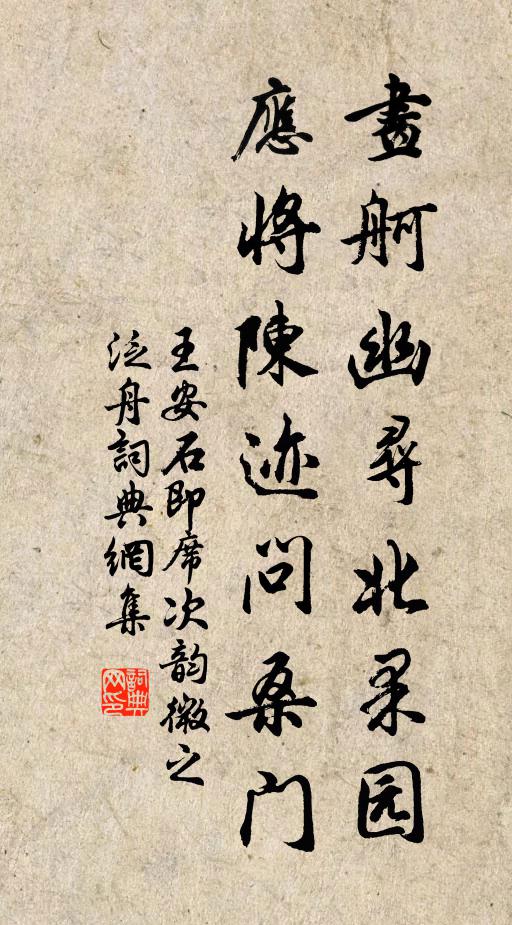 畫舸幽尋北果园
應將陳迹問桑門
王安石即席次韵微之
泛舟詞典網集
詞典
网印